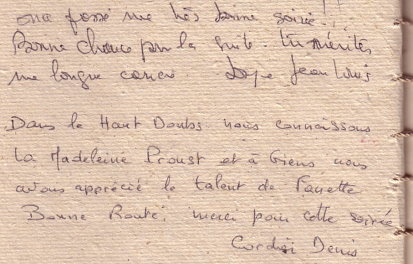 passé une très bonne soirée!!
Bonne chance pour la suite. Tu mérites
une longue
Jean Louis
Dans le Haut Doubs nous connaissons
La Madeleine Proust et à Giens nous
avons apprécié le talent de Fanette
Bonne Route, merci pour cette soirée
Denis